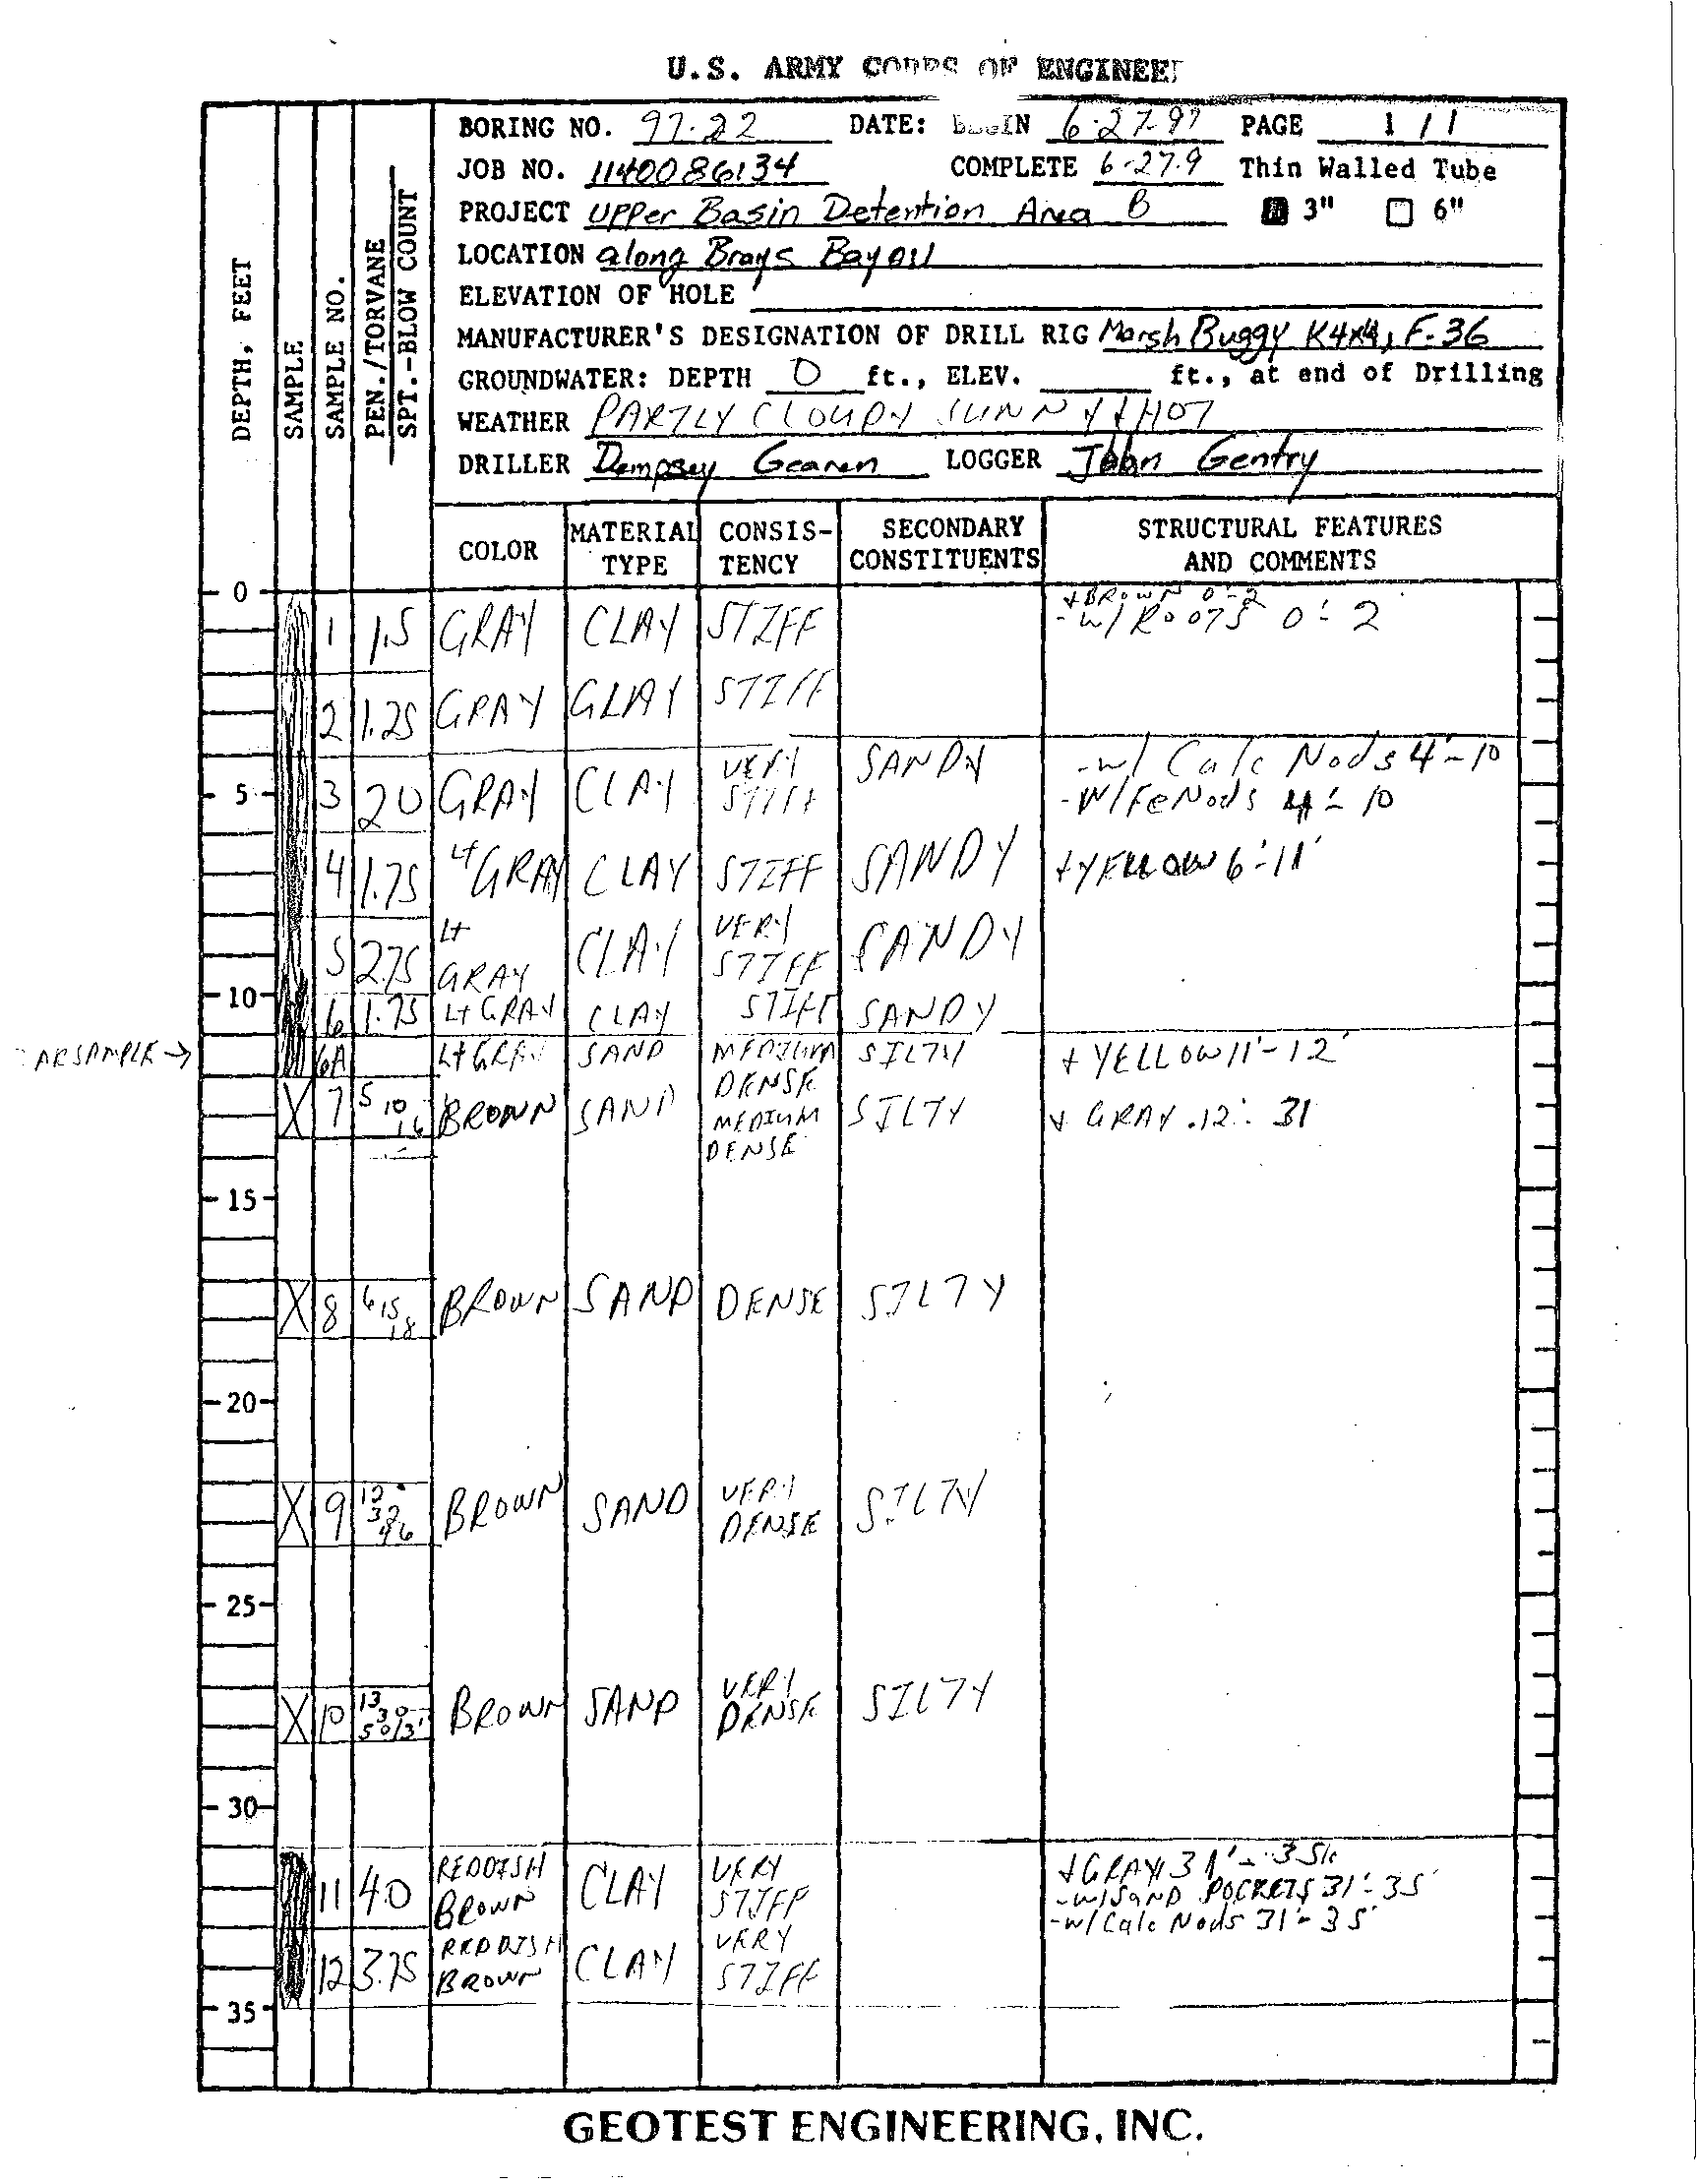 U.S. ARMY CORPS OF ENGINEE
BORING NO. 97-22 DATE: BEGIN 6-27-97 PAGE 1 / 1
JOB NO. 1140086134 COMPLETE 6-27-9 Thin Walled Tube
PROJECT Upper Basin Detention Area B 3" 6"
LOCATION along Brays Bayou
ELEVATION OF HOLE
MANUFACTURER'S DESIGNATION OF DRILL RIG Marsh Buggy K4x4, F-36
GROUNDWATER: DEPTH 0 ft., ELEV. ft., at end of Drilling
WEATHER PARTLY CLOUDY SUNNY + HOT
DRILLER Dempsey Gearen LOGGER John Gentry
DEPTH, FEET
SAMPLE
SAMPLE NO.
PEN./TORVANE
SPT.-BLOW COUNT
COLOR MATERIAL TYPE CONSIS-TENCY SECONDARY CONSTITUENTS STRUCTURAL FEATURES AND COMMENTS
0
+BROWN 0-2
1 1.5 GRAY CLAY STIFF -w/ROOTS 0-2
2 1.25 GRAY CLAY STIFF
5 3 2.0 GRAY CLAY VERY STIFF SANDY -w/ Calc Nods 4'-10
-W/Fe Nods 4'-10
4 1.75 Lt GRAY CLAY STIFF SANDY +YELLOW 6'-11'
5 2.75 Lt GRAY CLAY VERY STIFF SANDY
10 6 1.75 Lt GRAY CLAY STIFF SANDY
SAMPLE → 6A Lt GRAY SAND MEDIUM DENSE SILTY + YELLOW 11'-12'
7 5 10 16 BROWN SAND MEDIUM DENSE SILTY + GRAY 12'-31
15
8 6 15 18 BROWN SAND DENSE SILTY
20
9 32 46 BROWN SAND VERY DENSE SILTY
25
10 13 30 50/3" BROWN SAND VERY DENSE SILTY
30
11 4.0 REDDISH BROWN CLAY VERY STIFF +GRAY 31'-35'
-w/SAND POCKETS 31'-35'
-w/Calc Nods 31'-35'
12 3.75 REDDISH BROWN CLAY VERY STIFF
35
GEOTEST ENGINEERING, INC.